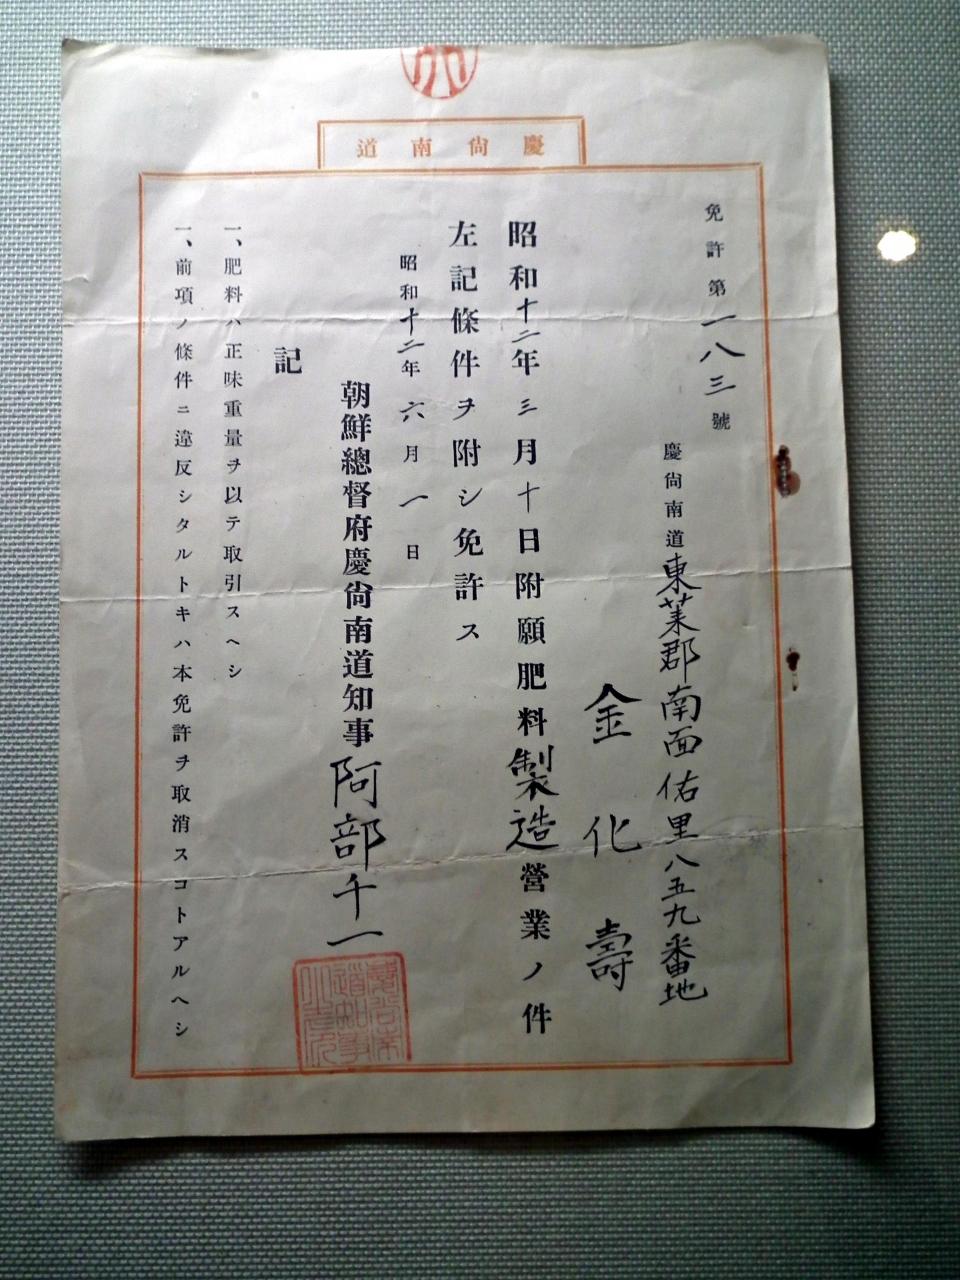 道南尙慶
免許第一八三號
慶尙南道東萊郡南面佑里八五九番地
金化壽
昭和十二年三月十日附願肥料製造營業ノ件
左記條件ヲ附シ免許ス
昭和十二年六月一日
朝鮮總督府慶尙南道知事阿部千一
記
一、肥料ハ正味重量ヲ以テ取引スヘシ
一、前項ノ條件ニ違反シタルトキハ本免許ヲ取消スコトアルヘシ